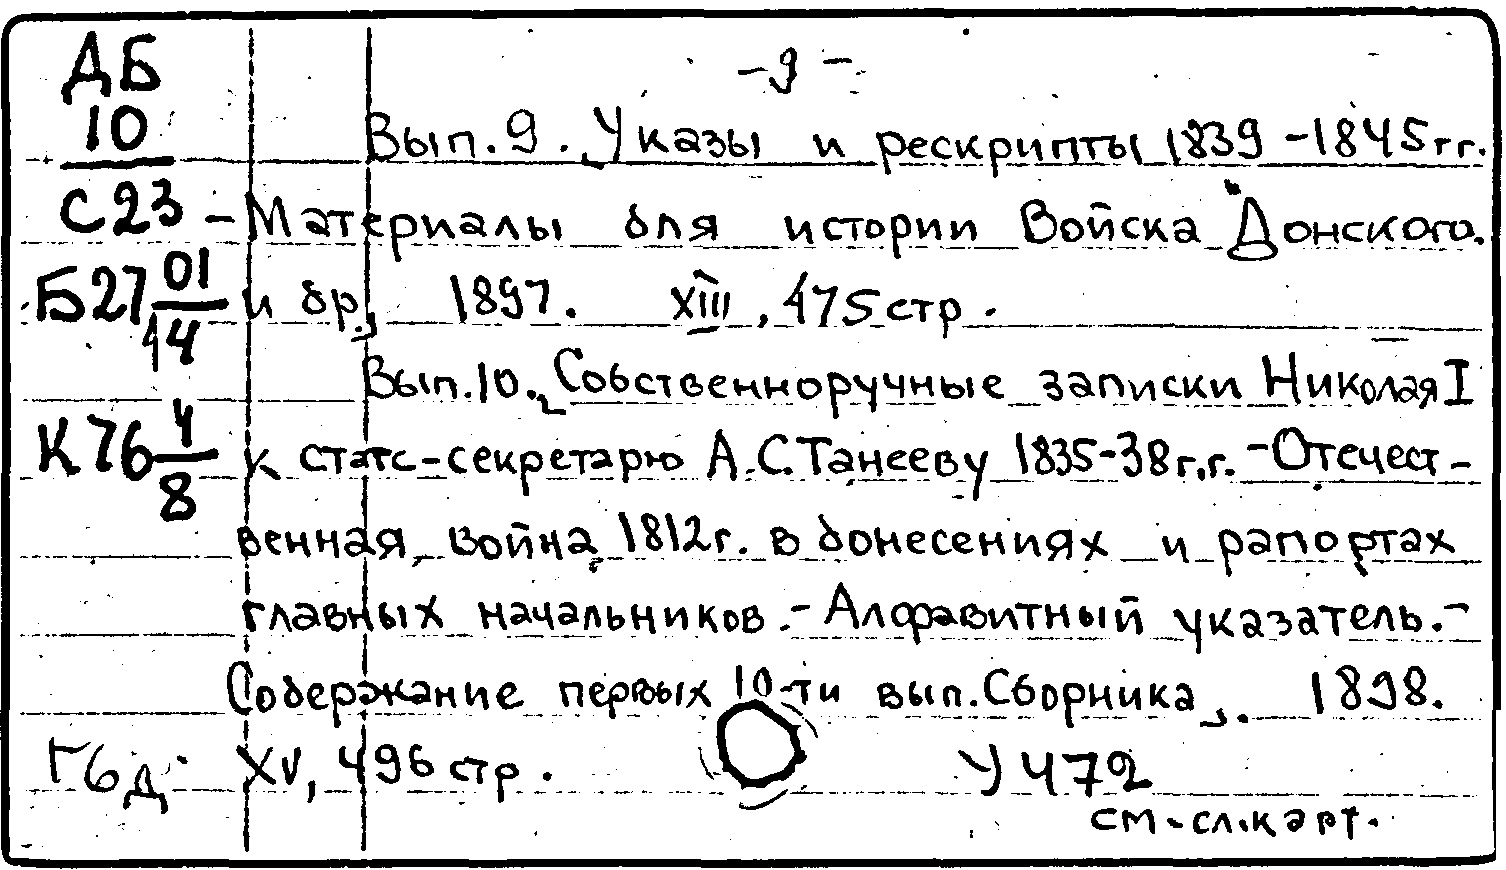 - 9 -
ДБ
10
С23
Б27 01/14
К76 4/8
Гбд
Вып.9. „Указы и рескрипты 1839-1845гг.
- Материалы для истории Войска "Донского.
и др„ 1897. XIII, 475 стр.
Вып.10. „Собственноручные записки Николая I
к статс-секретарю А.С.Танееву 1835-38г.г. - Отечест-
венная война 1812г. в донесениях и рапортах
главных начальников. - Алфавитный указатель. -
Содержание первых 10-ти вып. Сборника„. 1898.
XV, 496 стр.
У 472
см. сл. карт.